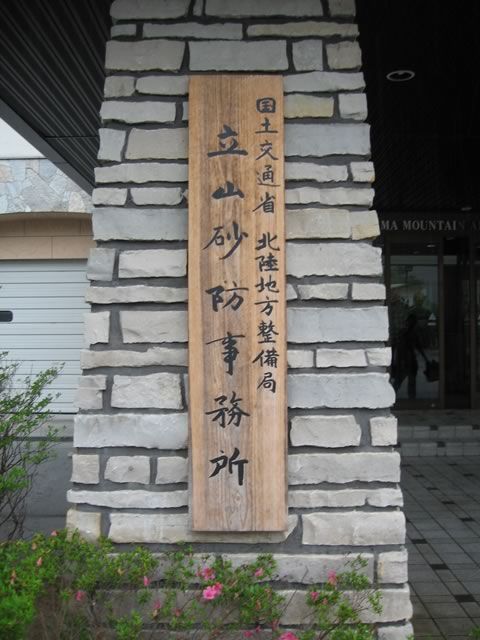 国土交通省 北陸地方整備局
立山砂防事務所
MA MOUNTAIN